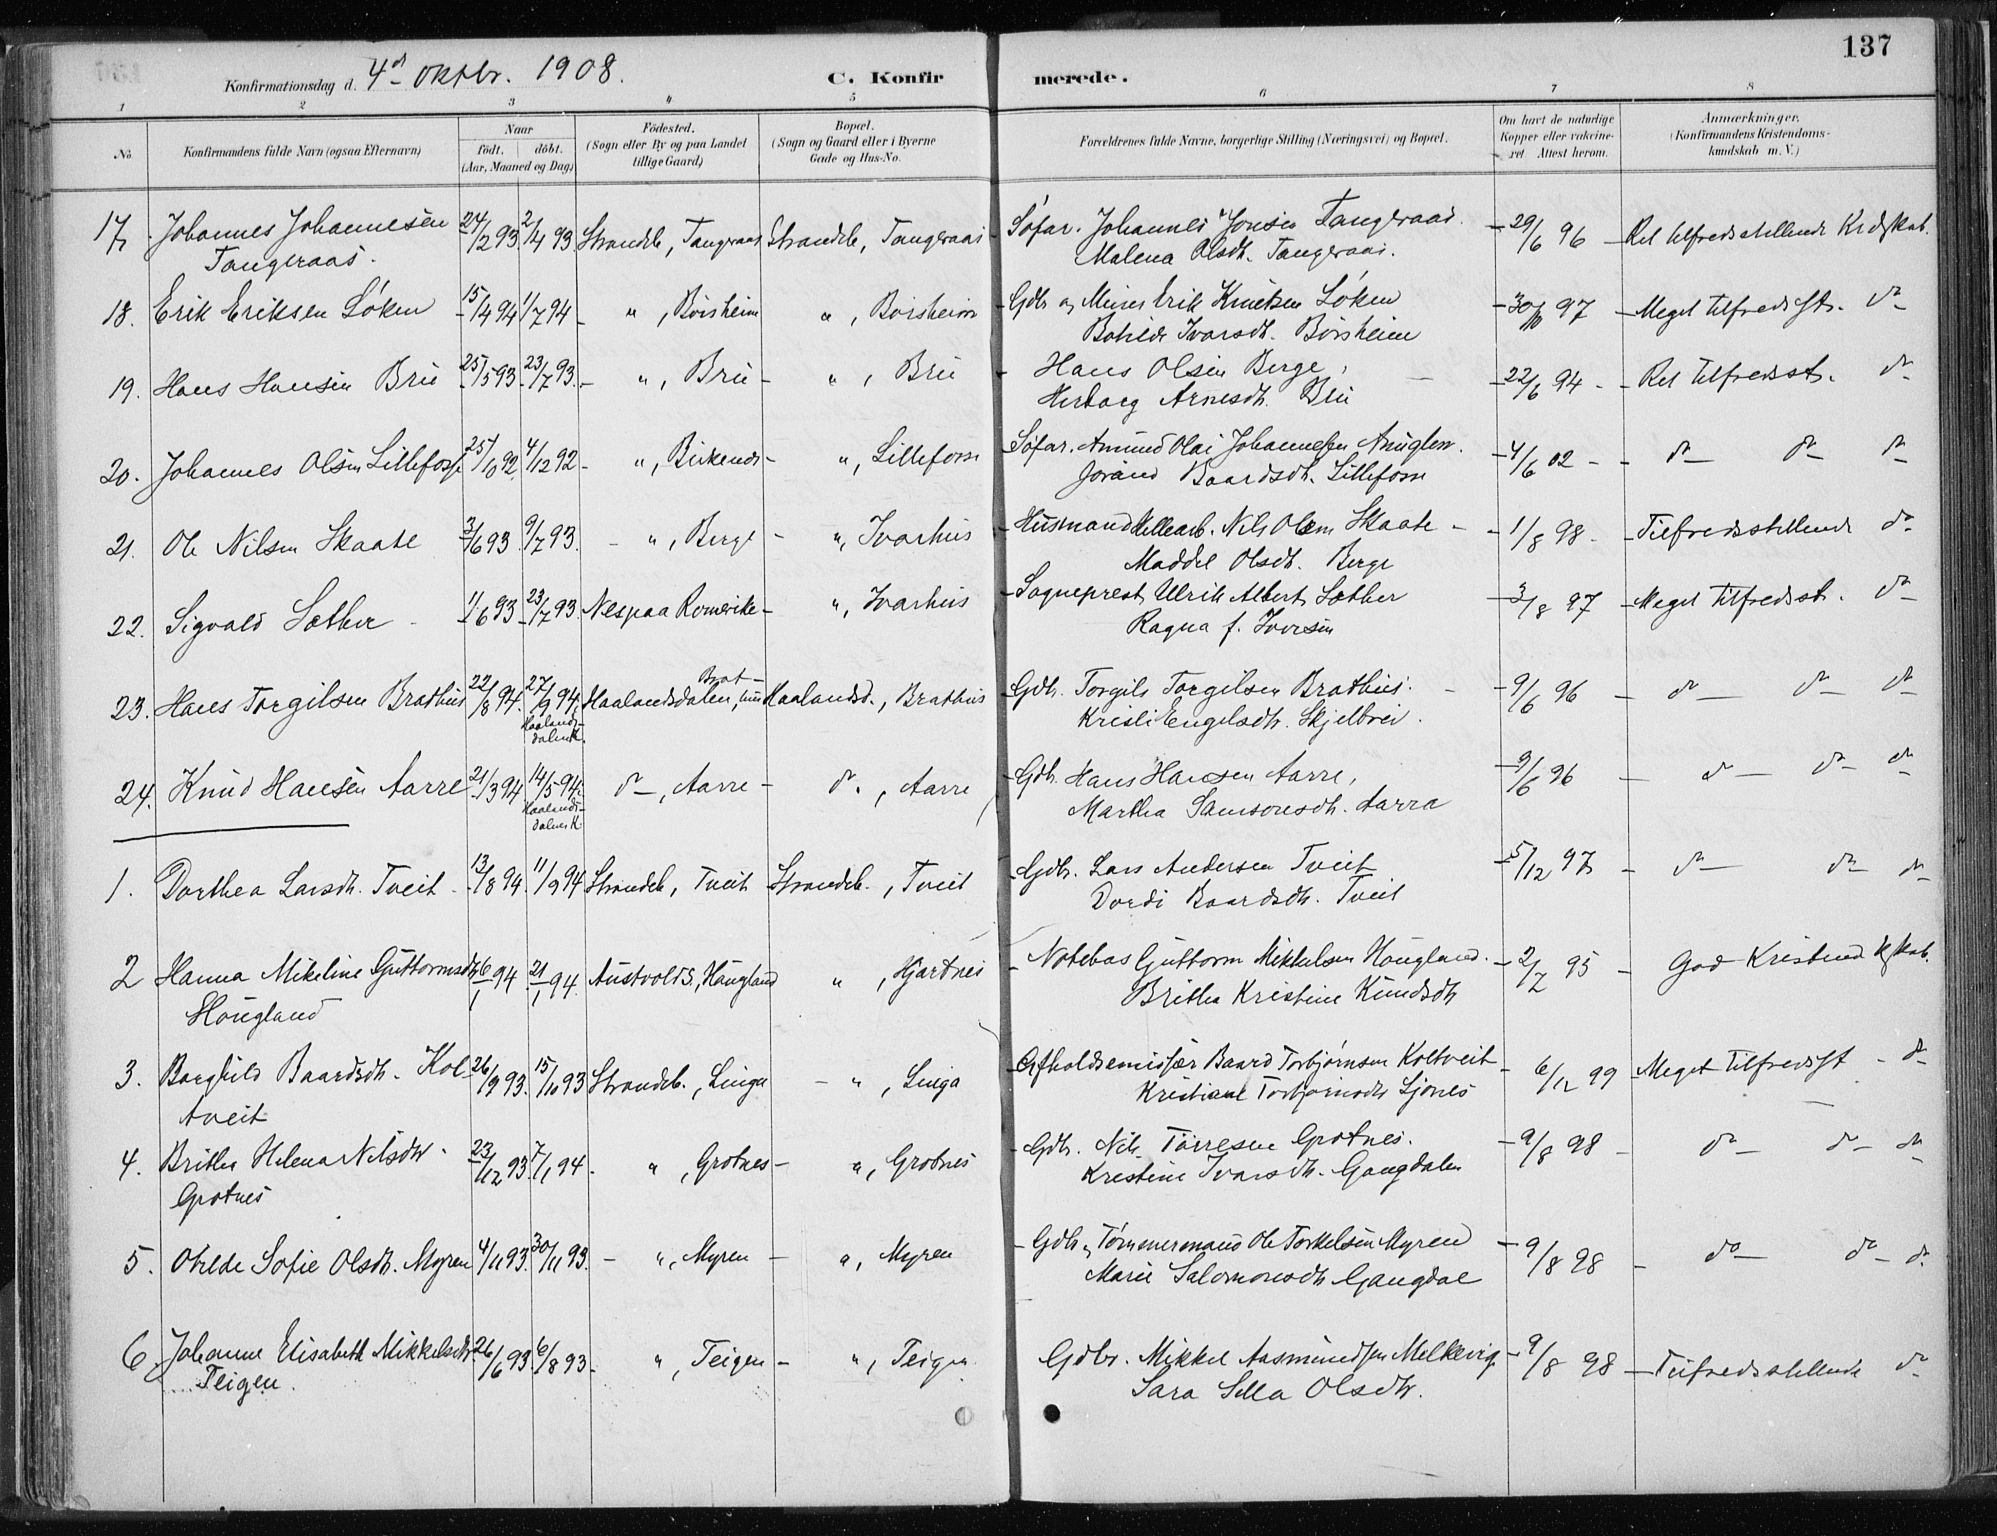 137
Konfirmationsdag d. 4d oktbr. 1908.
C. Konfirmerede.
1 2 3 4 5 6 7 8
No.
Konfirmandens fulde Navn (ogsaa Efternavn)
Naar
födt. döbt.
(Aar, Maaned og Dag)
Födested.
(Sogn eller By og paa Landet
tillige Gaard)
Bopæl.
(Sogn og Gaard eller i Byerne
Gade og Hus-No.
Forældrenes fulde Navne, borgerlige Stilling (Næringsvei) og Bopæl.
Om havt de naturlige
Kopper eller vakcine-
ret Attest herom.
Anmærkninger.
(Konfirmandens Kristendoms-
kundskab m. V.)
17. Johannes Johannesen 24/2 93 2/4 93 Strandeb., Tangeraas Strandeb., Tangeraas - Søfar. Johannes Jonsen Tangeraas. - 29/6 96 - Ret tilfredsstillende Kr.dskab.
Tangeraas. Malena Olsdtr. Tangeraas.
18. Erik Eriksen Løken 15/4 94 1/7 94 - ", Børsheim ", Børsheim - Gdb. og Murer Erik Knutsen Løken - 30/10 97 - Meget tilfredsst. do
Botilde Ivarsdtr. Børsheim
19. Hans Hansen Bru 25/5 93 23/7 93. - ", Bru - ", Bru - Hans Olsen Berge, - 22/6 94 - - Ret tilfredsst. do
Herborg Arnesdtr. Bru
20. Johannes Olsen Lillefosse 25/10 92 4/12 92 - ", Birkenes - ", Lillefosse Søfar. Amund Olai Johannessen Anuglen. - 4/6 02 - - do do do
Jorand Baardsdtr. Lillefosse
21. Ole Nilsen Skaate 3/6 93 9/7 93. - ", Berge - ", Ivarhus - Husmand Nils Olsen Skaate - - 1/8 98 - - Tilfredsstillende do
Maddel Olsdtr. Berge
22. Sigvald Sæther - 11/6 93 23/7 93. Nes paa Romerike - ", Ivarhus - Sogneprest Ulrik Albert Sæther - 3/8 97 - Meget tilfredsst. do
Ragna f. Iversen
23. Hans Torgilsen Brathus 22/8 94. 27/9 94, Haalandsdalen, Brat-hus Haalandsd., Brathus - Gdb. Torgils Torgilsen Brathus. - - 9/6 96 - do do do
Haalands-
dalen K. Kristi Engelsdtr. Skjelbrei.
24. Knud Hansen Aarre 21/3 94 14/5 94. do, Aarre - do, Aarre - Gdb. Hans Hansen Aarre, - 9/6 96 - do do do
Haalands-
dalen K. Martha Samsonsdtr. Aarra
1. Dorthea Larsdtr. Tveit - 13/8 94. 11/9 94 Strandeb., Tveit Strandeb., Tveit - Gdb. Lars Andersen Tveit - 5/12 97 - do do do
Dordi Baardsdtr. Tveit
2 Hanna Mikeline Guttormsdtr. 6/1 94 21/1 94. Austvold S., Hougland ", Hjartnes - Notebas Guttorm Mikkelsen Hougland. - 2/7 95 - God Kristend. kskab.
Hougland Britha Kristine Knudsdtr
3. Borghild Baardsdtr. Kol- 26/9 93. 15/10 93 Strandeb., Linga - ", Linga - Afholdsemissær Baard Torbjørnsen Koltveit - 6/12 99 - Meget tilfredsst - do
tveit Kristiane Torbjørnsdtr Sjones
4. Britha Helena Nilsdtr - 23/12 93 7/1 94 - ", Grotnes - ", Grotnes - Gdb. Nils Tørresen Grotnes. - 9/8 98 - do do do
Grotnes Kristine Ivarsdtr. Gangdalen
5. Otilde Sofie Olsdtr. Myren 4/11 93. 30/11 93. - ", Myren - ", Myren - Gdb. og Tømmermand Ole Torkelsen Myren - 9/8 98 - do do do
Marie Salomonsdtr Gangdal
6. Johanne Elisabeth Mikkelsdtr. 26/6 93. 6/8 93 - ", Teigen - ", Teigen Gdbr. Mikkel Aasmundsen Melkevig - 9/8 98 - Tilfredsstillende do
Teigen. Sara Sella Olsdtr.